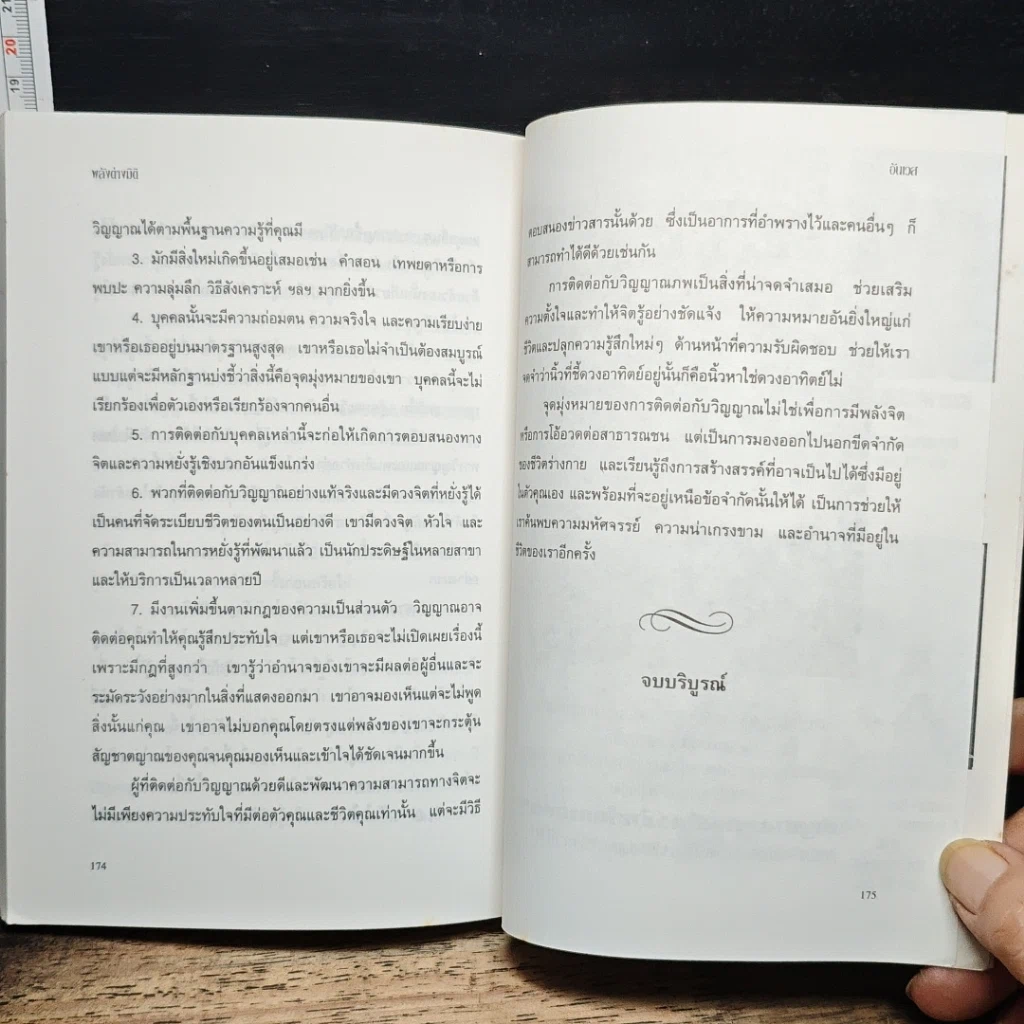 21
20
19
พลังต่างมิติ
วิญญาณได้ตามพื้นฐานความรู้ที่คุณมี
3. มักมีสิ่งใหม่เกิดขึ้นอยู่เสมอเช่น คำสอน เทพยดาหรือการ
พบปะ ความลุ่มลึก วิธีสังเคราะห์ ฯลฯ มากยิ่งขึ้น
4. บุคคลนั้นจะมีความถ่อมตน ความจริงใจ และความเรียบง่าย
เขาหรือเธออยู่บนมาตรฐานสูงสุด เขาหรือเธอไม่จำเป็นต้องสมบูรณ์
แบบแต่จะมีหลักฐานบ่งชี้ว่าสิ่งนี้คือจุดมุ่งหมายของเขา บุคคลนี้จะไม่
เรียกร้องเพื่อตัวเองหรือเรียกร้องจากคนอื่น
5. การติดต่อกับบุคคลเหล่านี้จะก่อให้เกิดการตอบสนองทาง
จิตและความหยั่งรู้เชิงบวกอันแข็งแกร่ง
6. พวกที่ติดต่อกับวิญญาณอย่างแท้จริงและมีดวงจิตที่หยั่งรู้ได้
เป็นคนที่จัดระเบียบชีวิตของตนเป็นอย่างดี เขามีดวงจิต หัวใจ และ
ความสามารถในการหยั่งรู้ที่พัฒนาแล้ว เป็นนักประดิษฐ์ในหลายสาขา
และให้บริการเป็นเวลาหลายปี
7. มีงานเพิ่มขึ้นตามกฎของความเป็นส่วนตัว วิญญาณอาจ
ติดต่อคุณทำให้คุณรู้สึกประทับใจ แต่เขาหรือเธอจะไม่เปิดเผยเรื่องนี้
เพราะมีกฎที่สูงกว่า เขารู้ว่าอำนาจของเขาจะมีผลต่อผู้อื่นและจะ
ระมัดระวังอย่างมากในสิ่งที่แสดงออกมา เขาอาจมองเห็นแต่จะไม่พูด
สิ่งนั้นแก่คุณ เขาอาจไม่บอกคุณโดยตรงแต่พลังของเขาจะกระตุ้น
สัญชาตญาณของคุณจนคุณมองเห็นและเข้าใจได้ชัดเจนมากขึ้น
ผู้ที่ติดต่อกับวิญญาณด้วยดีและพัฒนาความสามารถทางจิตจะ
ไม่มีเพียงความประทับใจที่มีต่อตัวคุณและชีวิตคุณเท่านั้น แต่จะมีวิธี
174
อันเวส
ตอบสนองข่าวสารนั้นด้วย ซึ่งเป็นอาการที่อำพรางไว้และคนอื่นๆ ก็
สามารถทำได้ดีด้วยเช่นกัน
การติดต่อกับวิญญาณภพเป็นสิ่งที่น่าจดจำเสมอ ช่วยเสริม
ความตั้งใจและทำให้จิตรู้อย่างชัดแจ้ง ให้ความหมายอันยิ่งใหญ่แก่
ชีวิตและปลุกความรู้สึกใหม่ๆ ด้านหน้าที่ความรับผิดชอบ ช่วยให้เรา
จดจำว่านิ้วที่ชี้ดวงอาทิตย์อยู่นั้นก็คือนิ้วหาใช่ดวงอาทิตย์ไม่
จุดมุ่งหมายของการติดต่อกับวิญญาณไม่ใช่เพื่อการมีพลังจิต
หรือการโอ้อวดต่อสาธารณชน แต่เป็นการมองออกไปนอกขีดจำกัด
ของชีวิตร่างกาย และเรียนรู้ถึงการสร้างสรรค์ที่อาจเป็นไปได้ซึ่งมีอยู่
ในตัวคุณเอง และพร้อมที่จะอยู่เหนือข้อจำกัดนั้นให้ได้ เป็นการช่วยให้
เราค้นพบความมหัศจรรย์ ความน่าเกรงขาม และอำนาจที่มีอยู่ใน
ชีวิตของเราอีกครั้ง
จบบริบูรณ์
175